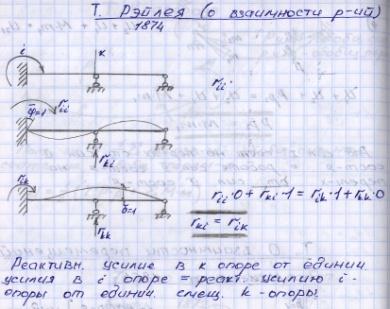 Т. Рэйлея (о взаимности р-ий)
1874
i
к
r ii
φ=1
r ii
r ki
r ik
δ=1
r kk
r ii · 0 + r ki · 1 = r ik · 1 + r kk · 0
r ki = r ik
Реактивн. усилие в к опоре от единич.
усилия в i опоре = реакт. усилию i-
опоры от единич. смещ. к-опоры.